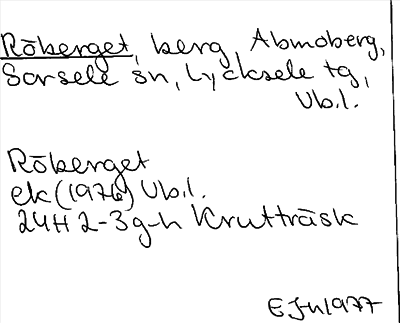 Röberget, berg Abmoberg,
Sorsele sn, Lycksele tg,
Vb.l.
Röberget
ek (1976) Vb.l.
24H 2-3g-h Krutträsk
EJ-n1977